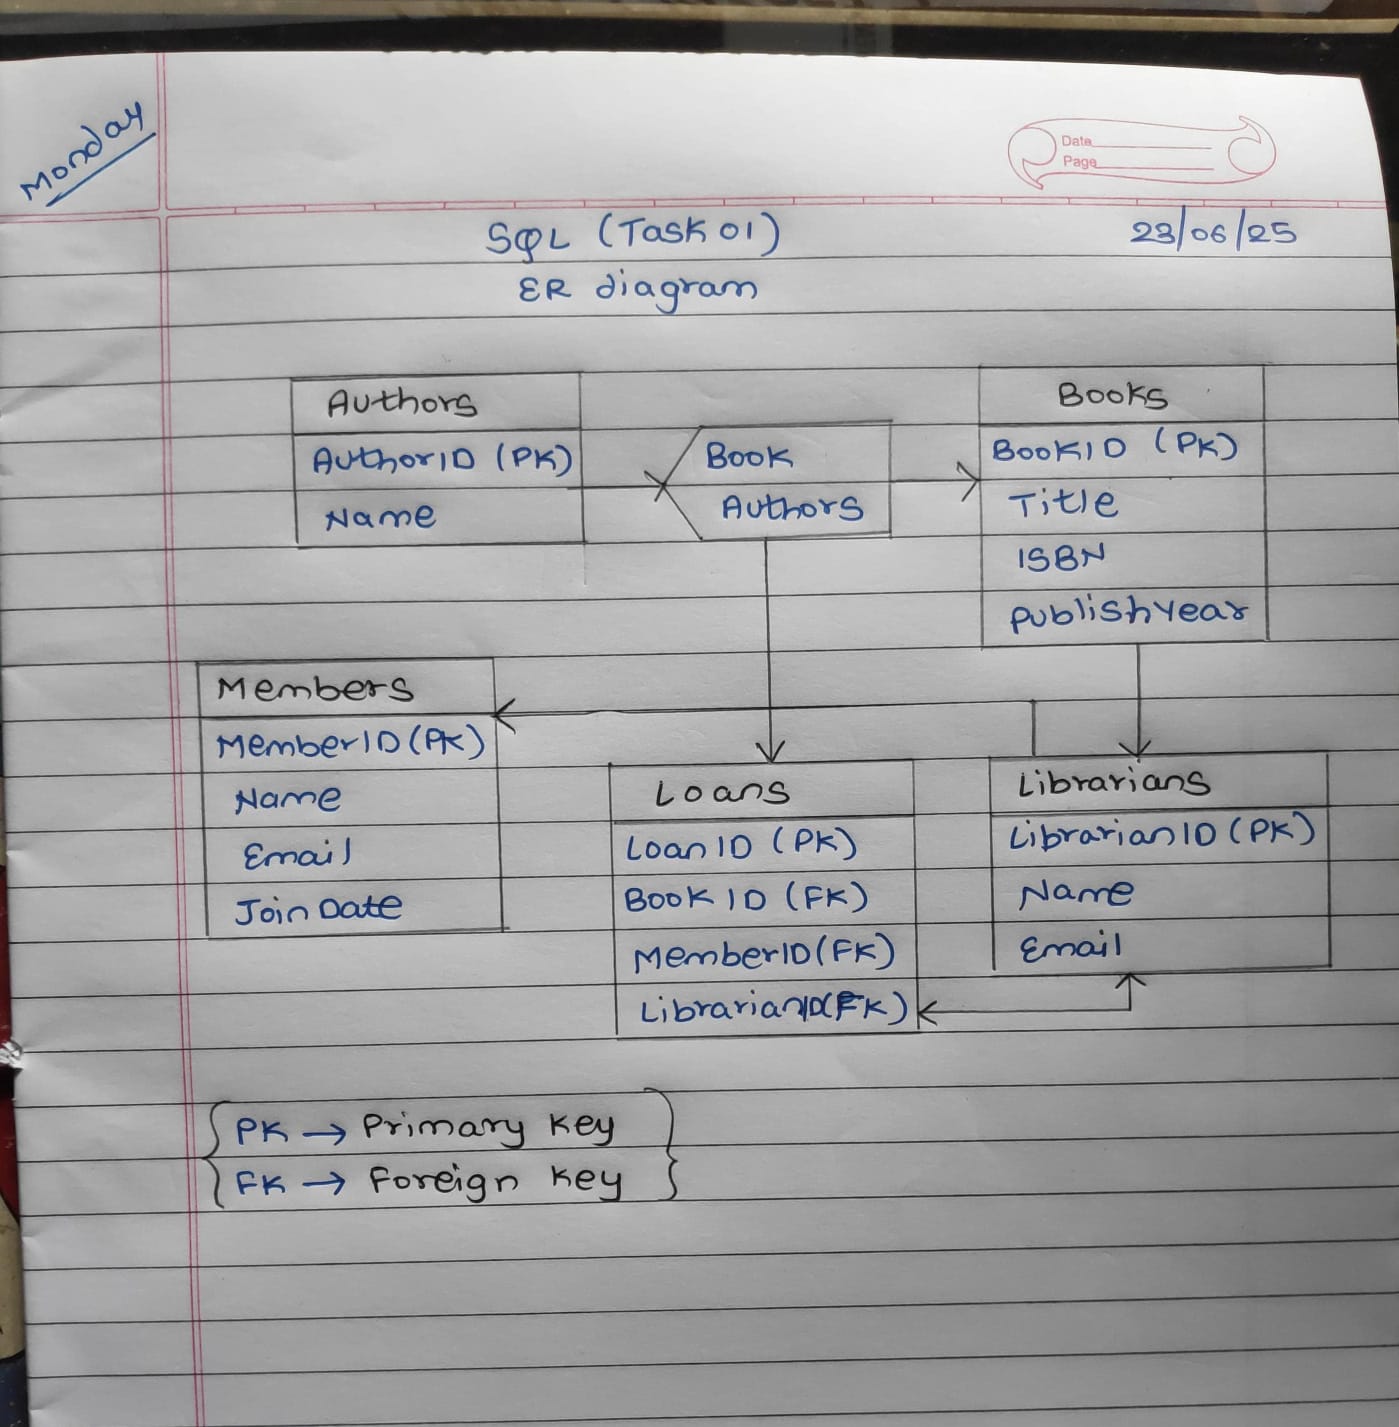 Monday
Date
Page
SQL (Task 01)
23/06/25
ER diagram
Authors
AuthorID (PK)
Name
Book
Authors
Books
BookID (PK)
Title
ISBN
PublishYear
Members
MemberID (PK)
Name
Email
Join Date
Loans
LoanID (PK)
Book ID (FK)
MemberID (FK)
LibrarianID (FK)
Librarians
LibrarianID (PK)
Name
Email
PK → Primary key
FK → Foreign key